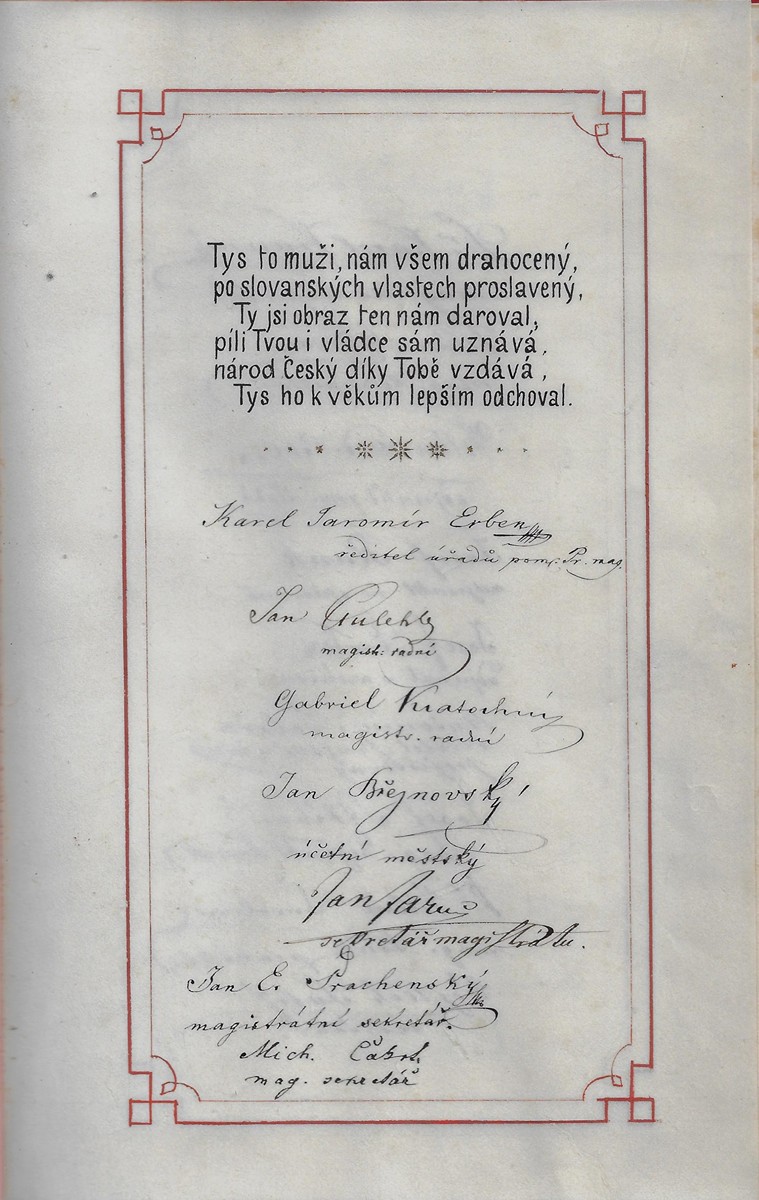 Tys to muži, nám všem drahocený,
po slovanských vlastech proslavený,
Ty jsi obraz ten nám daroval,
píli Tvou i vládce sám uznává,
národ Český díky Tobě vzdává,
Tys ho k věkům lepším odchoval.
Karel Jaromír Erben
ředitel úřadů pom. Pr. mag.
Jan
magist: radní
Gabriel Kratochvíl
magistr. radní
Jan Břejnovský
účetní městský
Jan Jaruš
sekretář magistrátu.
Jan E. Prachenský
magistrátní sekretář.
Mich. Čákrt
mag. sekretář